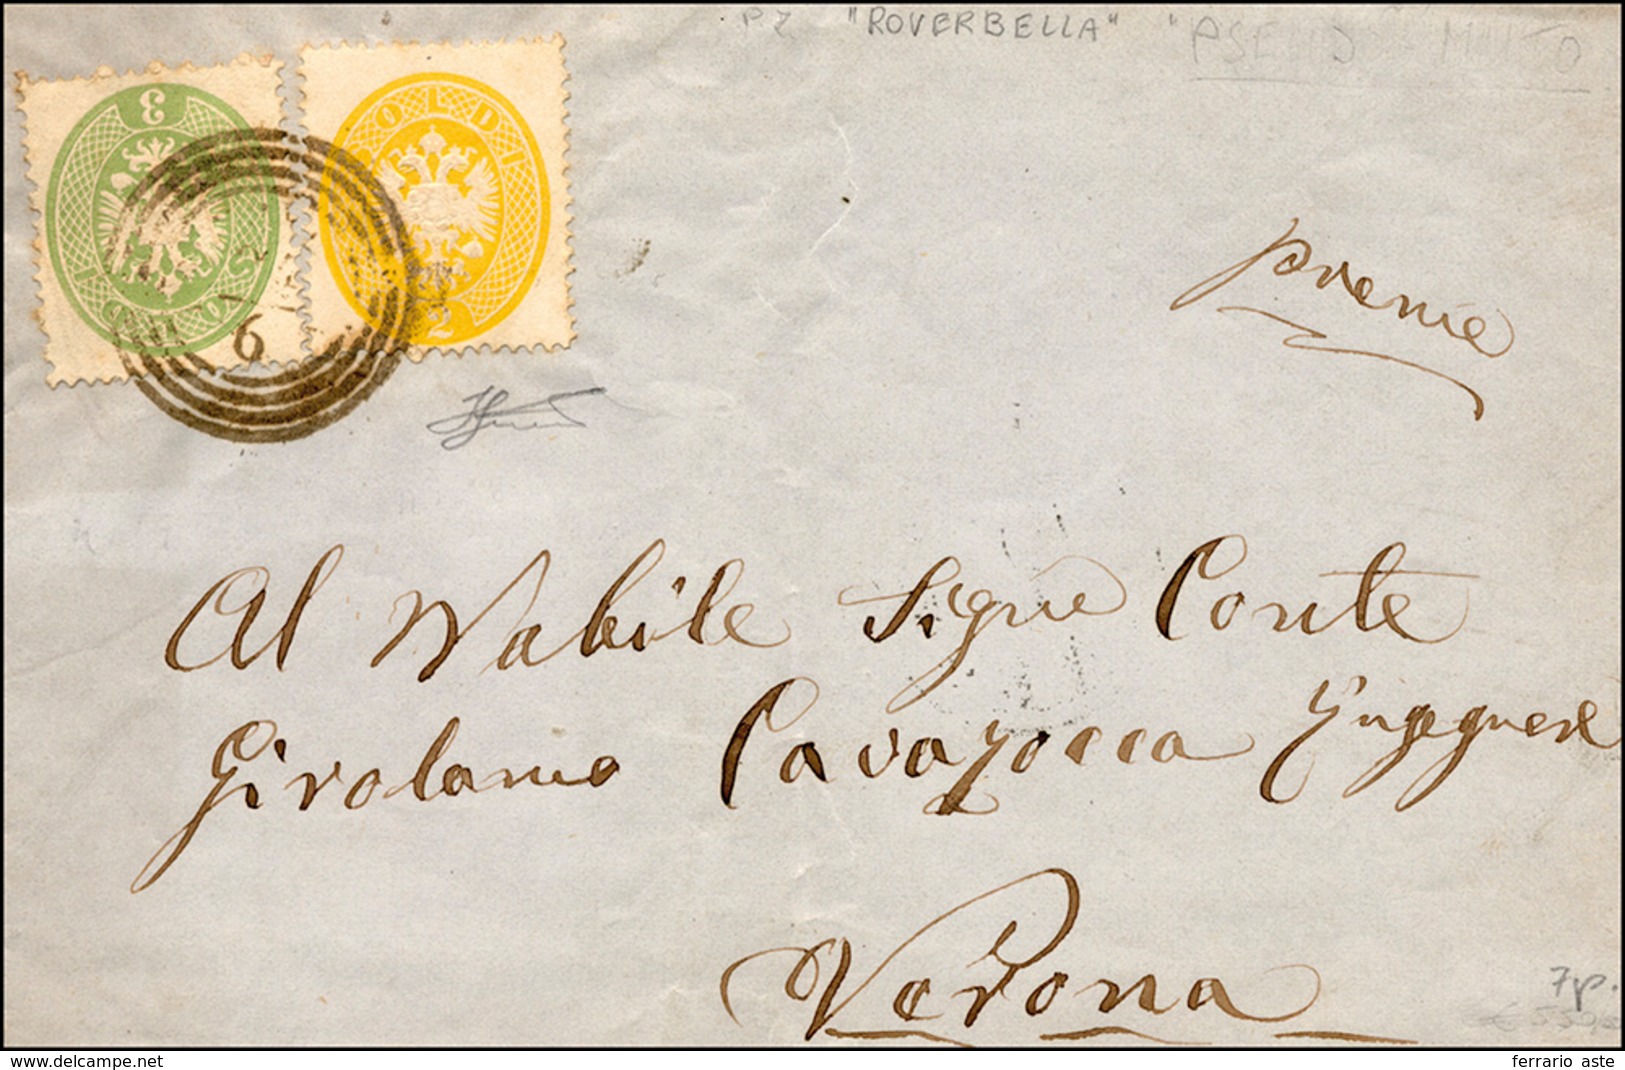 PZ "ROVERBELLA" "PSEUDO MUTO
SOLDI 3
SOLDI 2
6
preme
Al Nobile Sigre Conte
Girolamo Cavazocca Ingegnere
Verona
7p.
ferrario aste